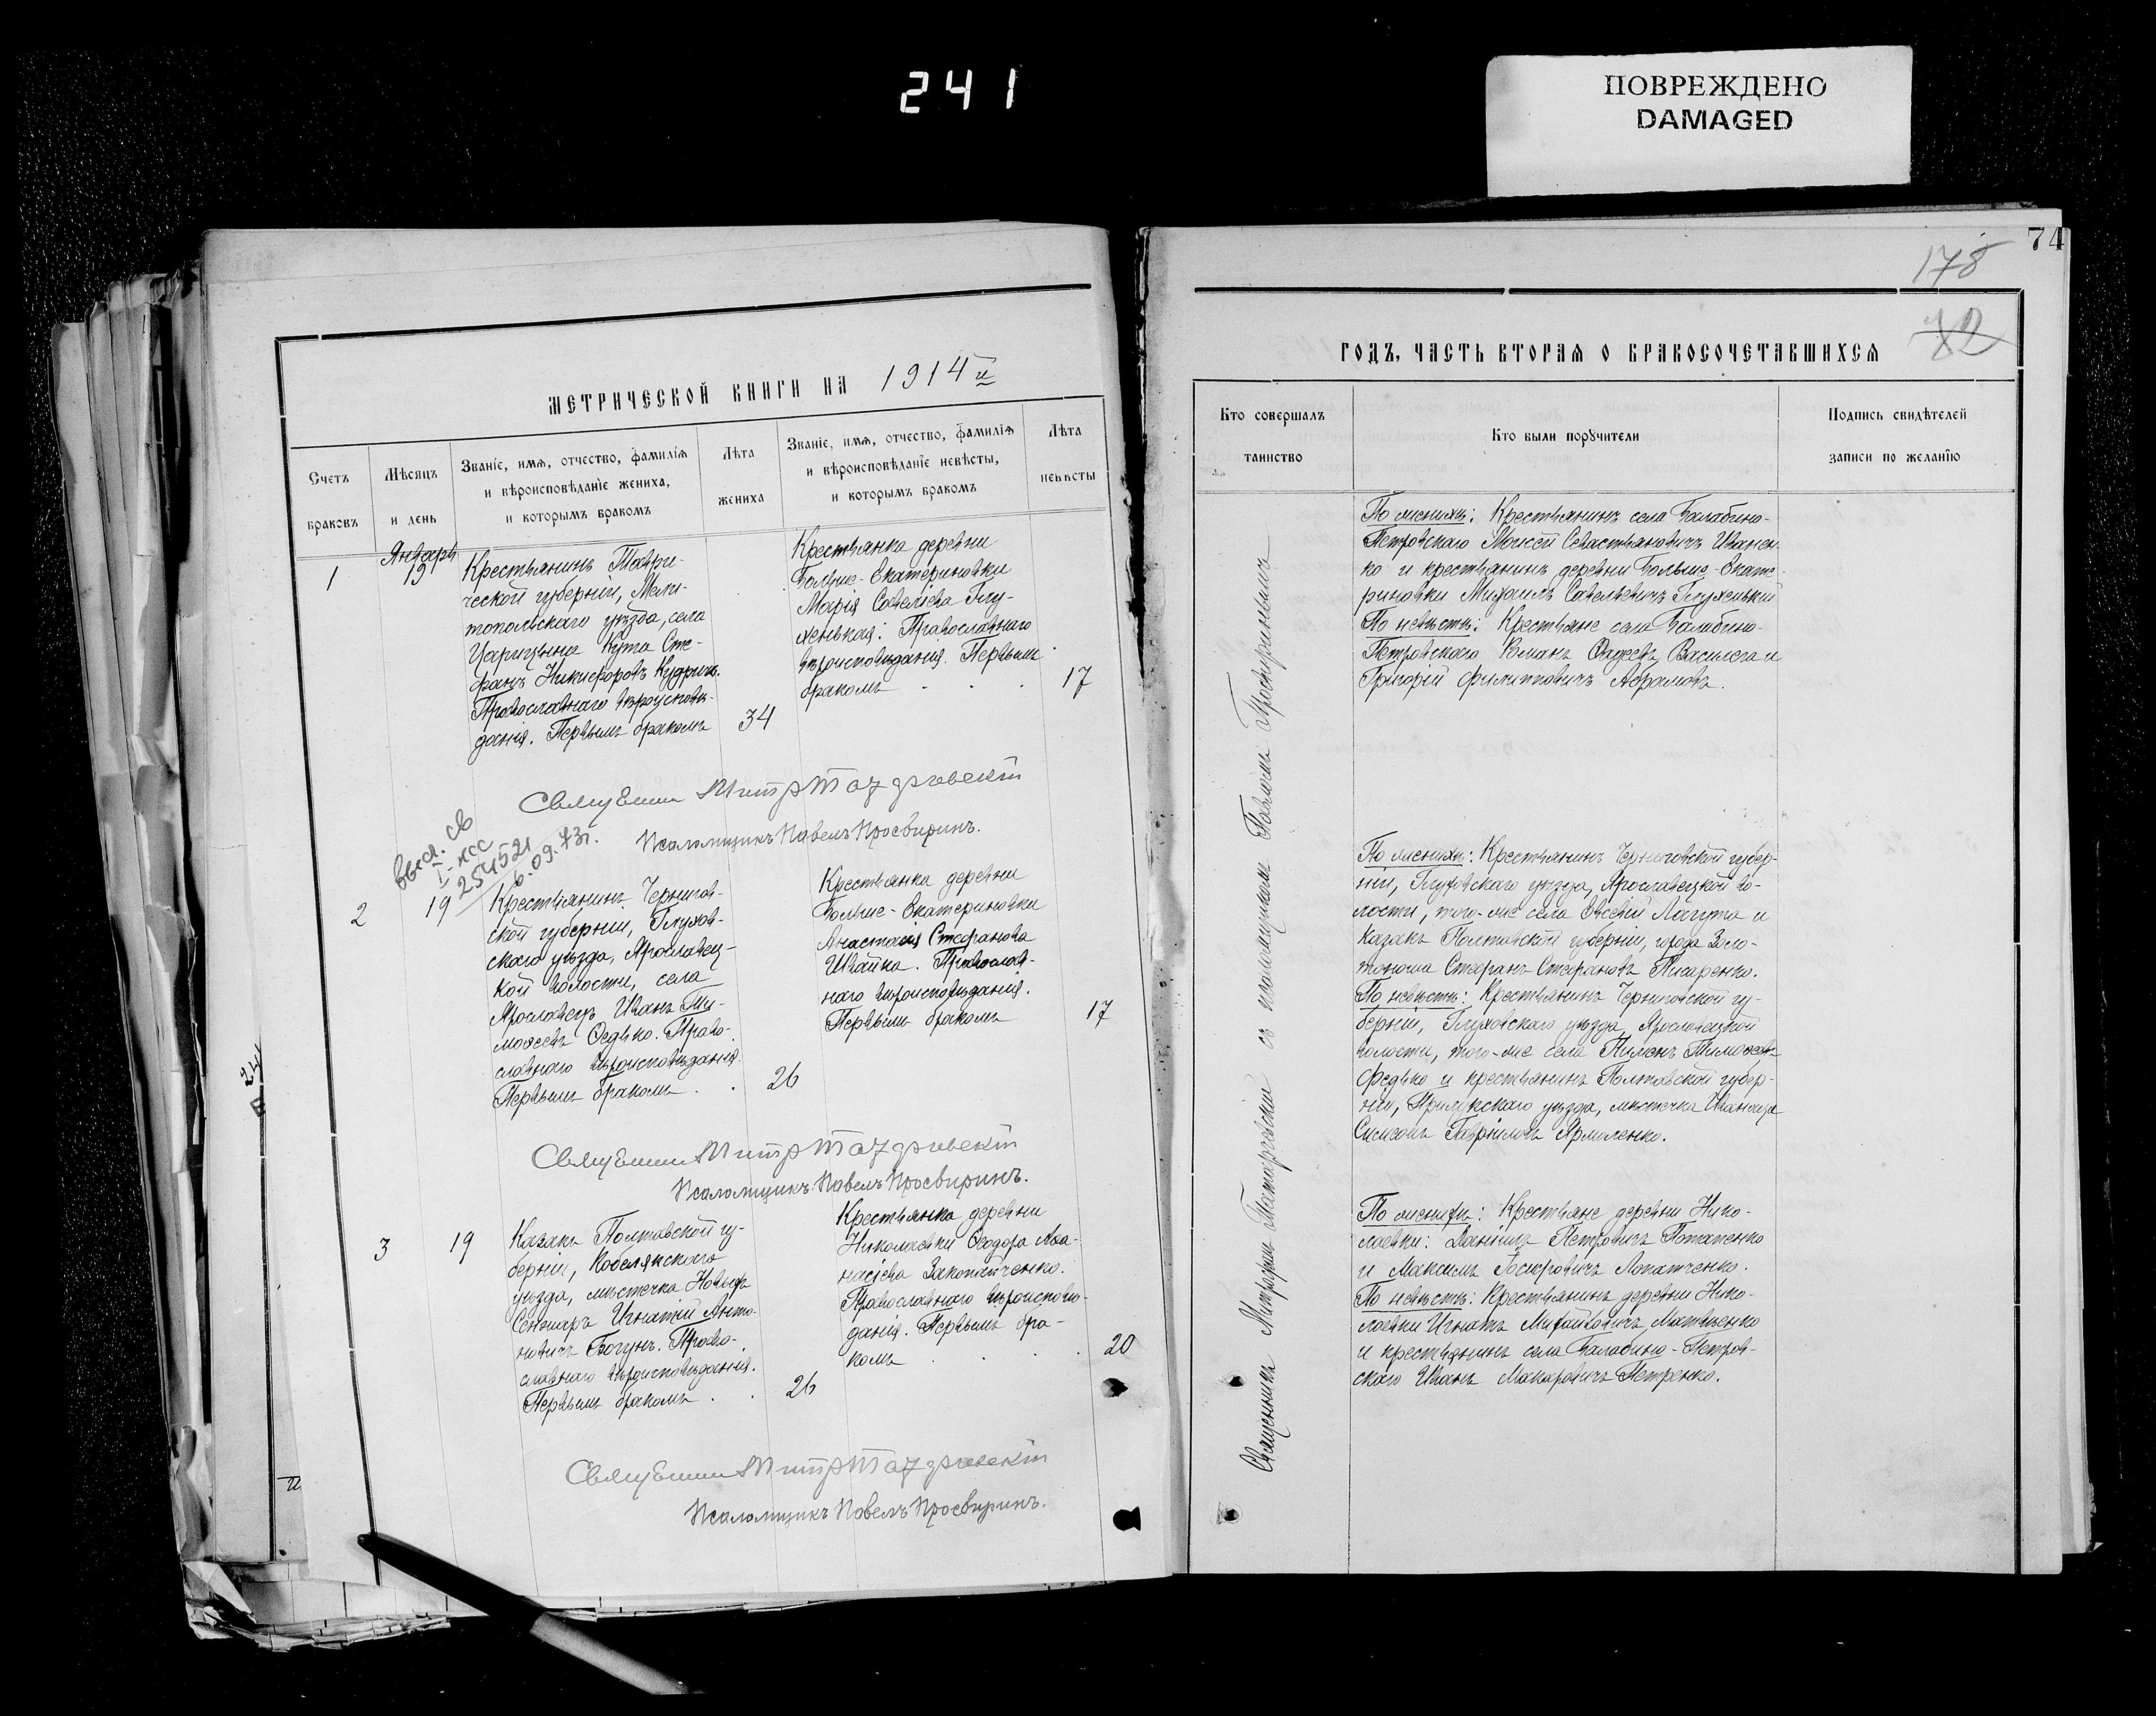 241
ПОВРЕЖДЕНО
DAMAGED
МЕТРИЧЕСКОЙ КНИГИ НА 1914й
Счетъ браковъ
Мѣсяцъ и день
Званіе, имя, отчество, фамилія
и вѣроисповѣданіе жениха,
и которымъ бракомъ
Лѣта жениха
Званіе, имя, отчество, фамилія
и вѣроисповѣданіе невѣсты,
и которымъ бракомъ
Лѣта невѣсты
1
Январь
19
Крестьянинъ Таври-
ческой губерніи, Мели-
топольскаго уѣзда, села
Царицына Кута Сте-
фанъ Никифоровъ
Православнаго вѣроисповѣ-
данія. Первымъ бракомъ
34
Крестьянка деревни
Больше-Екатериновки
Марія Савельева Глу-
хенькая: Православнаго
вѣроисповѣданія. Первымъ
бракомъ
17
Псаломщикъ Павелъ Просвиринъ.
254521
6.09.73г.
2
19
Крестьянинъ Чернигов-
ской губерніи, Глухов-
скаго уѣзда, Ярославец-
кой волости, села
Ярославецъ Иванъ Ти-
моѳеевъ Ѳедько. Право-
славнаго вѣроисповѣданія.
Первымъ бракомъ
26
Крестьянка деревни
Больше-Екатериновки
Анастасія Стефанова
Швайка. Православ-
наго вѣроисповѣданія.
Первымъ бракомъ
17
Псаломщикъ Павелъ Просвиринъ.
3
19
Казакъ Полтавской гу-
берніи, Кобелякскаго
уѣзда, мѣстечка Новыхъ
Сенжаръ Игнатій Анто-
новичъ Богунъ. Право-
славнаго вѣроисповѣданія.
Первымъ бракомъ
26
Крестьянка деревни
Николаевки Ѳеодора Аѳа-
насіева Закопайченко.
Православнаго вѣроисповѣ-
данія. Первымъ бра-
комъ
20
Псаломщикъ Павелъ Просвиринъ.
74
178
ГОДЪ, ЧАСТЬ ВТОРАЯ О БРАКОСОЧЕТАВШИХСЯ
Кто совершалъ таинство
Кто были поручители
Подпись свидѣтелей
записи по желанію
Священникъ Митрофанъ съ псаломщикомъ Павломъ Просвиринымъ
По женихѣ: Крестьянинъ села Балабино-
Петровскаго Моисей Севастьяновичъ Иванен-
ко и крестьянинъ деревни Больше-Екате-
риновки Михаилъ Савельевичъ Глухенькій
По невѣстѣ: Крестьяне села Балабино-
Петровскаго Романъ Василега и
Григорій Филипповичъ Абрамовъ.
По женихѣ: Крестьянинъ Черниговской губер-
ніи, Глуховскаго уѣзда, Ярославецкой во-
лости, того-же села Евсевій Лагута и
казакъ Полтавской губерніи, города Золо-
тоноша Стефанъ Стефановъ Писаренко.
По невѣстѣ: Крестьянинъ Черниговской гу-
берніи, Глуховскаго уѣзда, Ярославецкой
волости, того-же села Пименъ Тимоѳеевъ
Федько и крестьянинъ Полтавской губер-
ніи, Прилукскаго уѣзда, мѣстечка Иваница
Симеонъ Гавріиловъ Ярмоленко.
По женихѣ: Крестьяне деревни Нико-
лаевки: Даніилъ Петровичъ Потапенко
и Максимъ Лопатченко.
По невѣстѣ: Крестьянинъ деревни Нико-
лаевки Игнатъ Михайловичъ Матвіенко
и крестьянинъ села Балабино-Петров-
скаго Иванъ Макаровичъ Петренко.